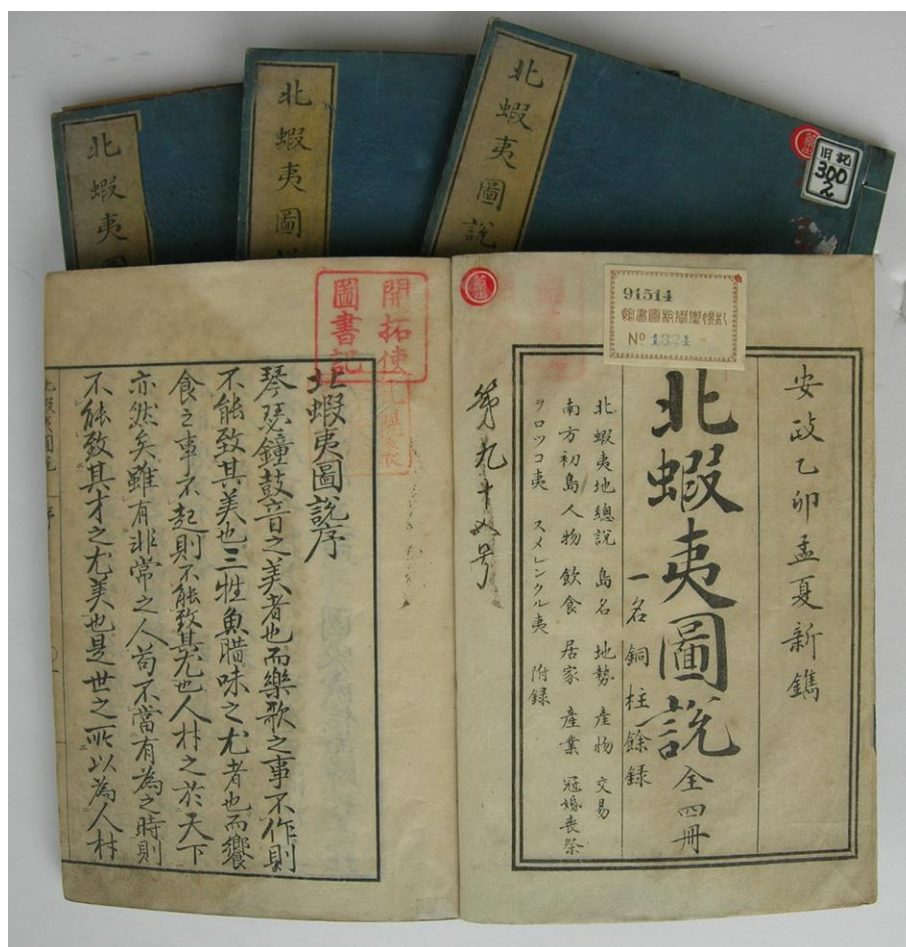 北蝦夷圖
北蝦夷圖
北蝦夷圖説
旧記
300
2
91514
札幌農學校圖書館
Nº 1324
安政乙卯孟夏新鐫
北蝦夷圖説 全四冊
一名銅柱餘録
北蝦夷地總説 島名 地勢 產物 交易
南方初島人物 飲食 居家 產業 冠婚喪祭
ヲロッコ夷 スメレンクル夷 附録
開拓使
圖書記
北蝦夷圖説序
琴瑟鐘鼓音之美者也而樂歌之事不作則
不能致其美也三牲魚腊味之尤者也而饗
食之事不起則不能致其尤也人材之於天下
亦然矣雖有非常之人苟不當有為之時則
不能致其才之尤美也是世之所以為人材